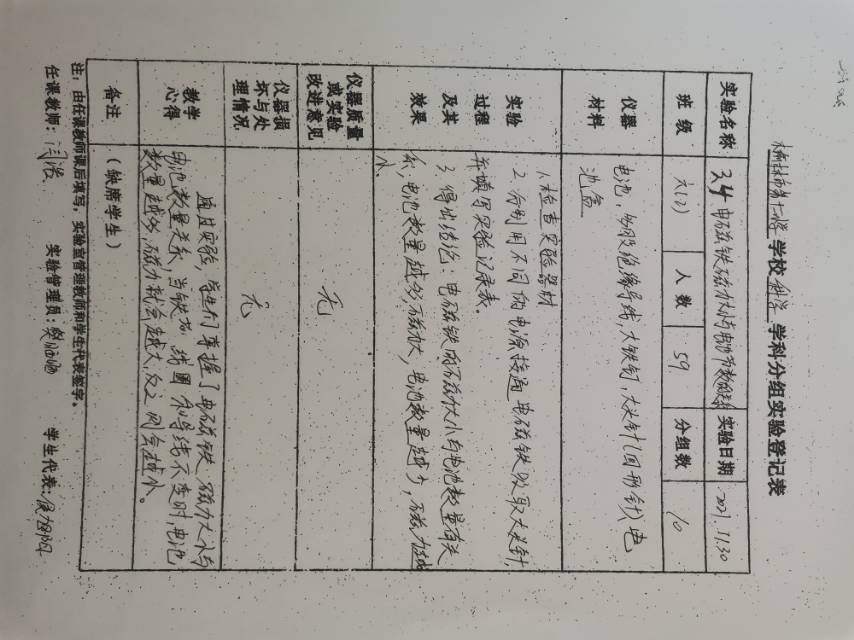 榆林市第十二小学 学校 科学 学科分组实验登记表
实验名称 3.4 电磁铁磁力大小与电池节数的关系 实验日期 2021.11.30
班级 六(2) 人数 59 分组数 10
仪器材料 电池，多股绝缘导线，大铁钉，大头针(回形针)电
池盒
实验过程及其效果
1、检查实验器材
2、分别用不同的电源接通电磁铁吸取大头针，
并填写实验记录表。
3、得出结论：电磁铁的磁力大小与电池数量有关
系，电池数量越多，磁力越大，电池数量越少，磁力越
小。
仪器质量或实验改进意见 无
仪器损坏与处理情况 无
教学心得
通过实验，学生们掌握了电磁铁磁力大小与
电池数量关系，当铁芯、线圈和导线不变时，电池
数量越多，磁力就会越大，反之则会越小。
备注 (缺席学生)
注：由任课教师课后填写，实验室管理教师和学生代表签字。
任课教师： 实验管理员： 学生代表：